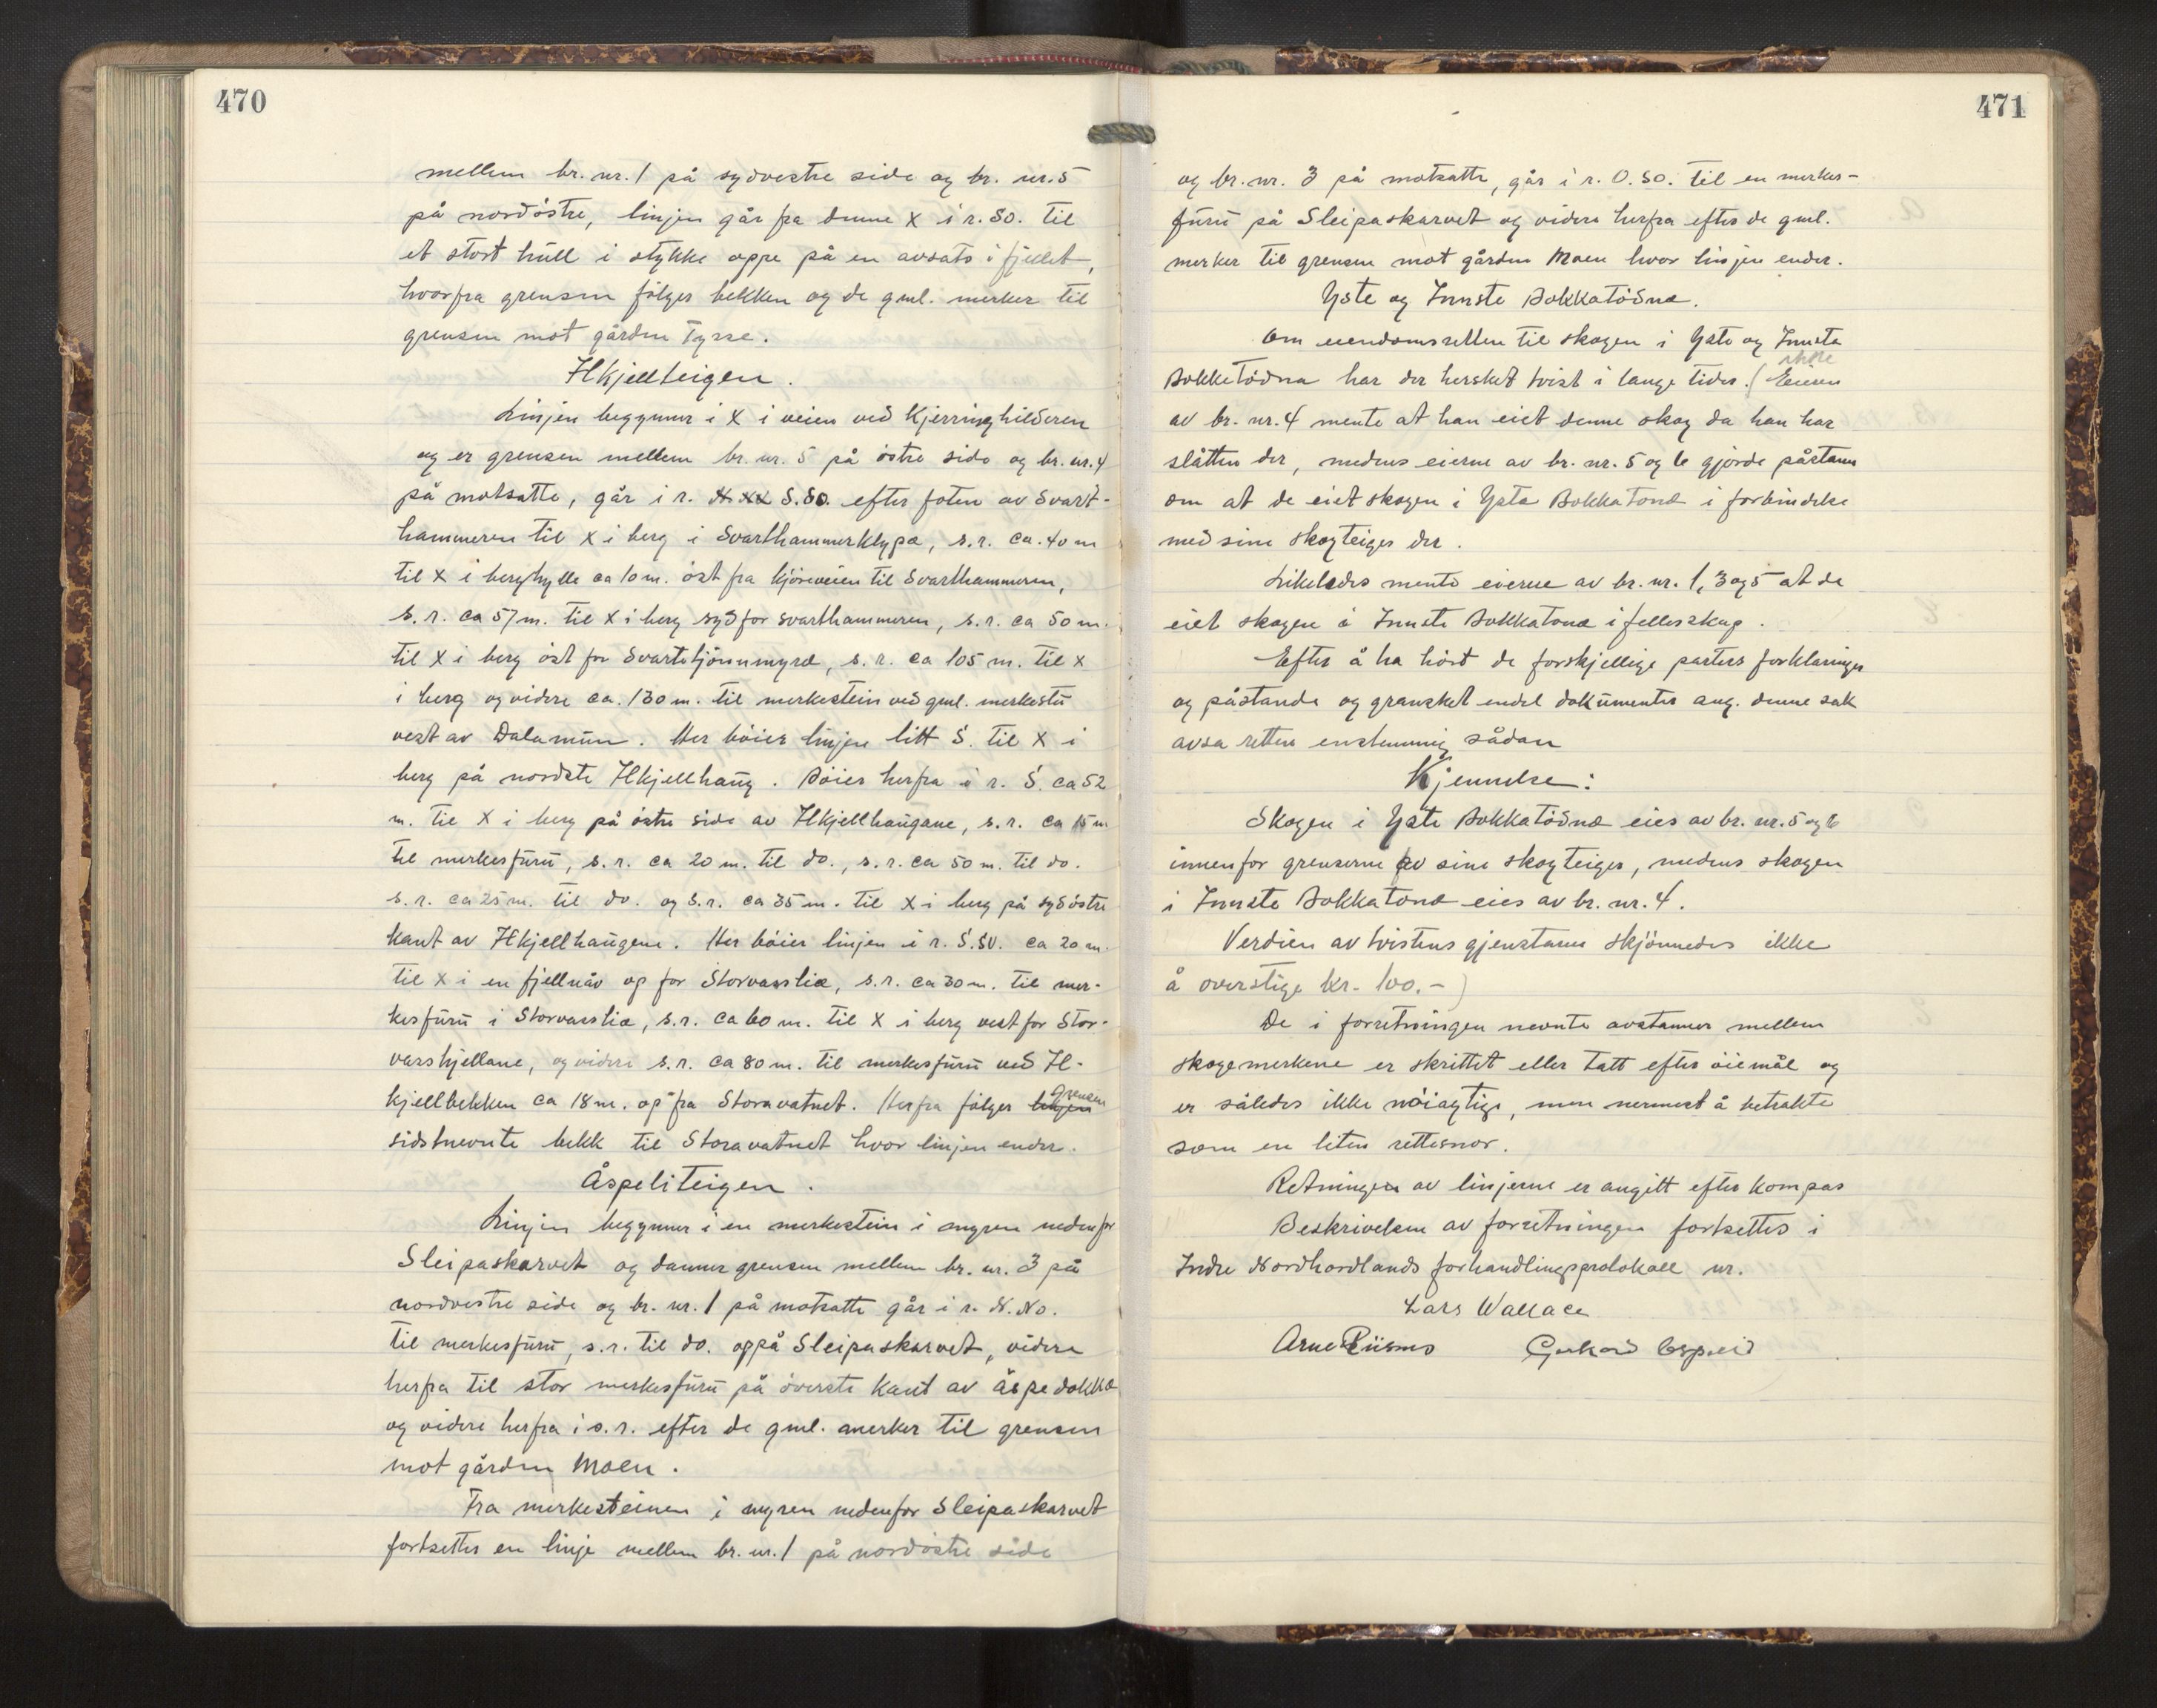 470
mellem br. nr. 1 på sydvestre side og br. nr. 5
på nordöstre, linjen går fra denne X i r. SO. til
et stort hull i stykke oppe på en avsats i fjellet,
hvorfra grensen fölger bekken og de gml. merker til
grensen mot gården Tysse.
Hkjellteigen.
Linjen begynner i X i veien ved Kjerringhilderen
og er grensen mellem br. nr. 5 på östre side og br. nr. 4
på motsatte, går i r. S.SO. efter foten av Svart-
hammeren til X i berg i Svarthammerklypa, s.r. ca. 40 m
til X i berghylle ca 10 m. öst fra kjöreveien til Svarthammeren,
s.r. ca 57 m. til X i berg syd for svarthammeren, s.r. ca 50 m.
til X i berg öst for Svartetjönnmyra, s.r. ca 105 m. til X
i berg og videre ca. 130 m. til merkestein ved gml. merkestu
vest av Dalamunn. Her böier linjen litt S. til X i
berg på nordste Hkjellhaug. Böier herfra i r. S. ca 52
m. til X i berg på östre side av Hkjellhaugane, s.r. ca 15 m
til merkesfuru, s.r. ca 20 m. til do., s.r. ca 50 m. til do.
s.r. ca 25 m. til do. og s.r. ca 35 m. til X i berg på sydöstre
kant av Hkjellhaugene. Her böier linjen i r. S.SV. ca 20 m.
til X i en fjellnåv op for Storvasslia, s.r. ca 30 m. til mer-
kesfuru i Storvasslia, s.r. ca 60 m. til X i berg vest for Stor-
varshjellane, og videre s.r. ca 80 m. til merkesfuru ved H-
kjellbekken ca 18 m. op fra Storavatnet. Herfra fölger linjen grensen
sidstnevnte bekk til Storavatnet hvor linjen ender.
Åspeliteigen.
Linjen begynner i en merkestein i myren nedenfor
Sleipaskarvet og danner grensen mellem br. nr. 3 på
nordvestre side og br. nr. 1 på motsatte går i r. N.NO.
til merkesfuru, s.r. til do. oppå Sleipaskarvet, videre
herfra til stor merkesfuru på överste kant av åspedokka
og videre herfra i s.r. efter de gml. merker til grensen
mot gården Moen.
Fra merkesteinen i myren nedenfor Sleipaskarvet
fortsettes en linje mellem br. nr. 1 på nordöstre side
471
og br. nr. 3 på motsatte, går i r. O.SO. til en merkes-
furu på Sleipaskarvet og videre herfra efter de gml.
merker til grensen mot gården Moen hvor linjen ender.
Yste og Innste Bokkatödna.
Om eiendomsretten til skogen i Yste og Innste
Bokketödna har der hersket tvist i lange tider. (Eieren
av br. nr. 4 mente at han eiet denne skog da han har
slåtten der, medens eierne av br. nr. 5 og 6 gjorde påstann
om at de eiet skogen i Yste Bokkatona i forbindelse
med sine skogteiger der.
Likeledes mente eierne av br. nr. 1, 3 og 5 at de
eiet skogen i Innste Bokkatona i felleskap.
Efter å ha hört de forskjellige parters forklaringer
og påstande og gransket endel dokumenter ang. denne sak
avsa retten enstemmig sådan
Kjennelse:
Skogen i Yste Bokkatödna eies av br. nr. 5 og 6
innenfor grenserne av sine skogteiger, medens skogen
i Innste Bokkatona eies av br. nr. 4.
Verdien av tvistens gjenstann skjönnedes ikke
å overstige kr. 100.-)
De i forretningen nevnte avstanner mellem
skogemerkene er skrittet eller tatt efter öiemål og
er således ikke nöiagtige, men nermest å betrakte
som en liten rettesnor.
Retningen av linjerne er angitt efter kompas
Beskrivelsen av forretningen fortsettes i
Indre Nordhordlands forhandlingsprotokoll nr.
Lars Wallace
Arne Riisnes Gerhard Espeid